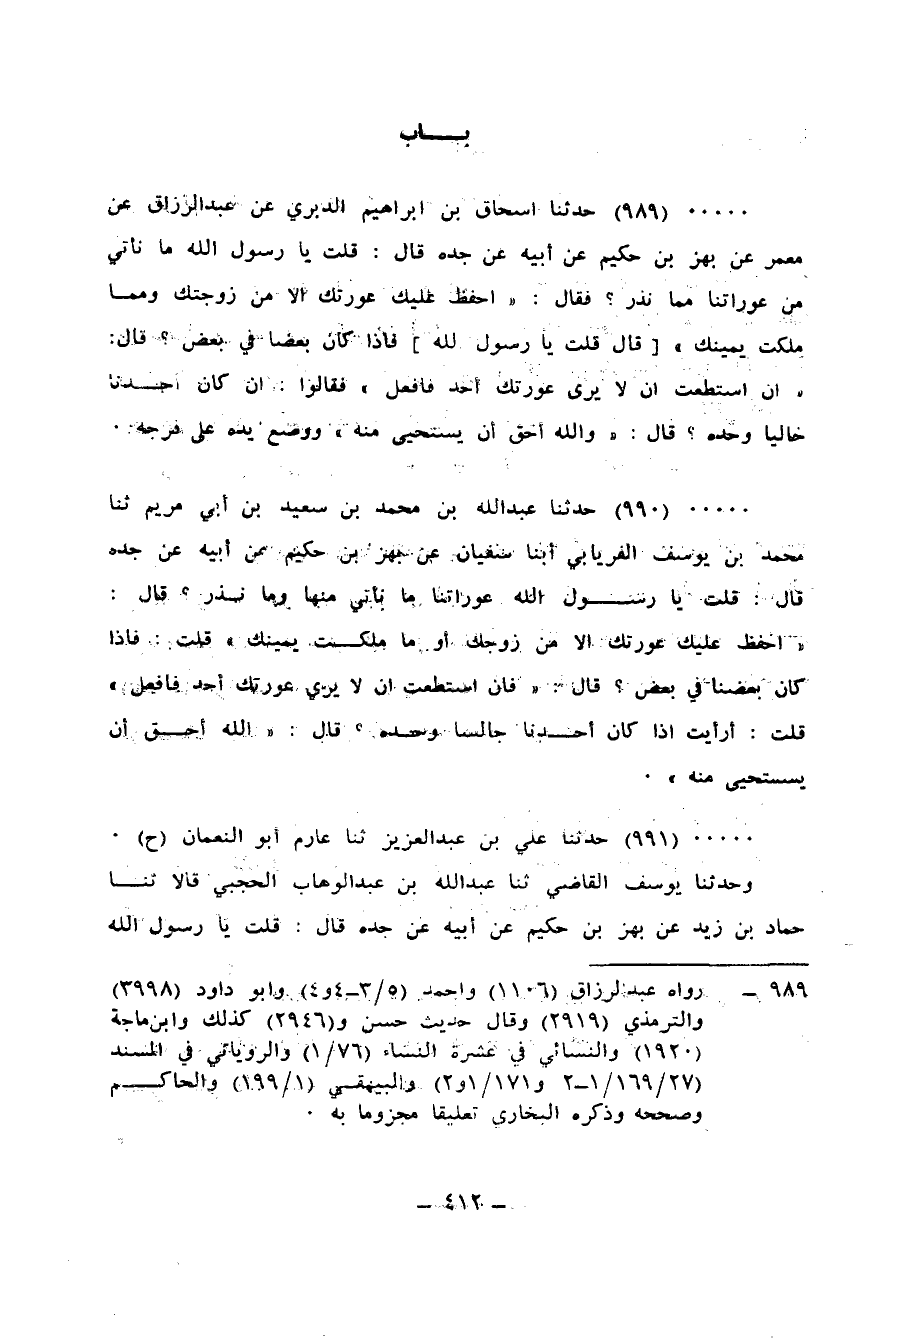 بــــاب
٠٠٠٠٠ (٩٨٩) حدثنا اسحاق بن ابراهيم الدبري عن عبدالرزاق عن
معمر عن بهز بن حكيم عن أبيه عن جده قال : قلت يا رسول الله ما نأتي
من عوراتنا مما نذر ؟ فقال : « احفظ عليك عورتك الا من زوجتك وممــا
ملكت يمينك » [ قال قلت يا رسول لله ] فاذا كان بعضا في بعض ؟ قال:
« ان استطعت ان لا يرى عورتك أحد فافعل » فقالوا : ان كان أحــدنا
خاليا وحده ؟ قال : « والله أحق أن يستحيى منه » ووضع يده على فرجه ٠
٠٠٠٠٠ (٩٩٠) حدثنا عبدالله بن محمد بن سعيد بن أبي مريم ثنا
محمد بن يوسف الفريابي أبنا سفيان عن بهز بن حكيم عن أبيه عن جده
قال : قلت يا رســـول الله عوراتنا ما نأتي منها وما نــذر ؟ قال :
« احفظ عليك عورتك الا من زوجك أو ما ملكــت يمينك » قلت : فاذا
كان بعضنا في بعض ؟ قال : « فان استطعت ان لا يرى عورتك أحد فافعل »
قلت : أرأيت اذا كان أحــدنا جالسا وحــده ؟ قال : « الله أحــق أن
يستحيى منه » ٠
٠٠٠٠٠ (٩٩١) حدثنا علي بن عبدالعزيز ثنا عارم أبو النعمان (ح) ٠
وحدثنا يوسف القاضي ثنا عبدالله بن عبدالوهاب الحجبي قالا ثنــا
حماد بن زيد عن بهز بن حكيم عن أبيه عن جده قال : قلت يا رسول الله
٩٨٩ ــ رواه عبدالرزاق (١١٠٦) واحمد (٥/٣ــ٤و٤) وابو داود (٣٩٩٨)
والترمذي (٢٩١٩) وقال حديث حسن و(٢٩٤٦) كذلك وابن ماجة
(١٩٢٠) والنسائي في عشرة النساء (١/٧٦) والروياني في المسند
(٢٧/١٦٩/١ــ٢ و١/١٧١و٢) والبيهقــي (١/١٩٩) والحاكــم
وصححه وذكره البخاري تعليقا مجزوما به ٠
ــ ٤١٢ ــ